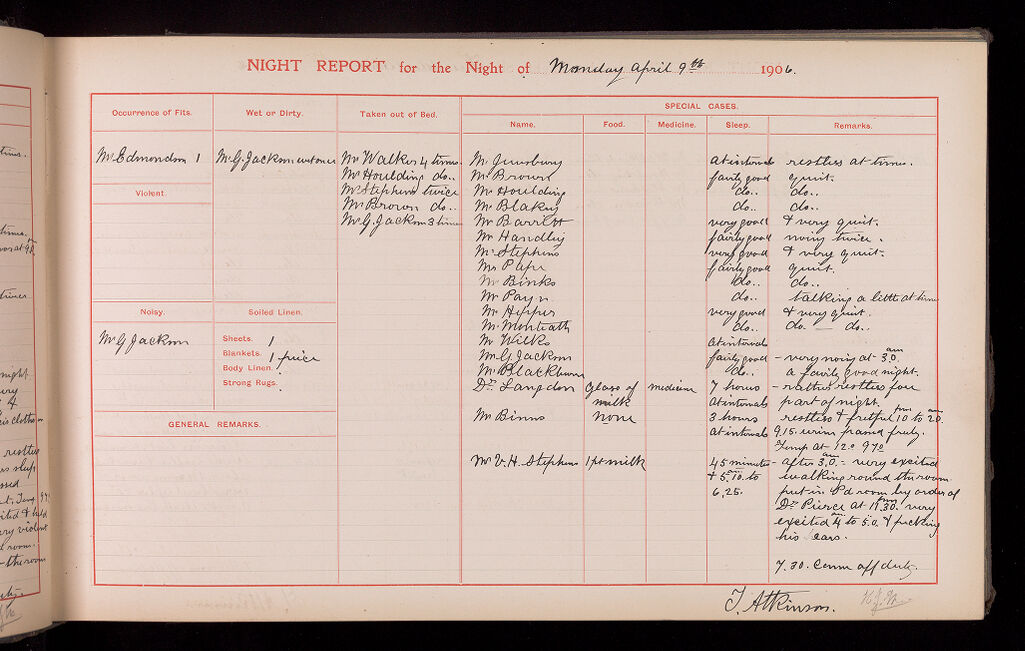 NIGHT REPORT for the Night of Monday April 9th 1906.
Occurrence of Fits.
Mr Edmondson 1
Violent.
Noisy.
Mr G Jackson
Wet or Dirty.
Mr G. Jackson wet once
Soiled Linen.
Sheets. 1
Blankets. 1 piece
Body Linen.
Strong Rugs.
GENERAL REMARKS.
Taken out of Bed.
Mr Walker 4 times
Mr Houlding do..
Mr Stephens twice
Mr Brown do..
Mr G. Jackson 3 times
SPECIAL CASES.
Name. Food. Medicine. Sleep. Remarks.
Mr at intervals restless at times.
Mr Brown fairly good quiet.
Mr Houlding do.. do..
Mr Blakey do.. do..
Mr Barritt very good & very quiet.
Mr Handley fairly good noisy twice.
Mr Stephens very good & very quiet.
Mr Pape fairly good quiet.
Mr Binks do.. do..
Mr Payn do.. talking a little at times
Mr Hepper very good & very quiet.
Mr Monteath do.. do. — do..
Mr Wilks at intervals
Mr G Jackson fairly good - very noisy at 3.0. am
Mr Blackburn do.. a fairly good night.
Dr Langdon glass of medicine 7 hours - rather restless for
milk at intervals part of night.
Mr Binns none 3 hours restless & fretful 10 pm to 2.0. am
at intervals 9.15. urine passed freely.
Temp at 12.0 97.0
Mr V. H. Stephens 1 pt milk 45 minutes - after 3.0. am - very excited
& 5.10. am to walking round the room
6.25. put in P'd room by order of
Dr Pierce at 11.30. pm very
excited 4 am to 5.0. & picking
his ears.
7.30. Came off duty.
T. Atkinson.